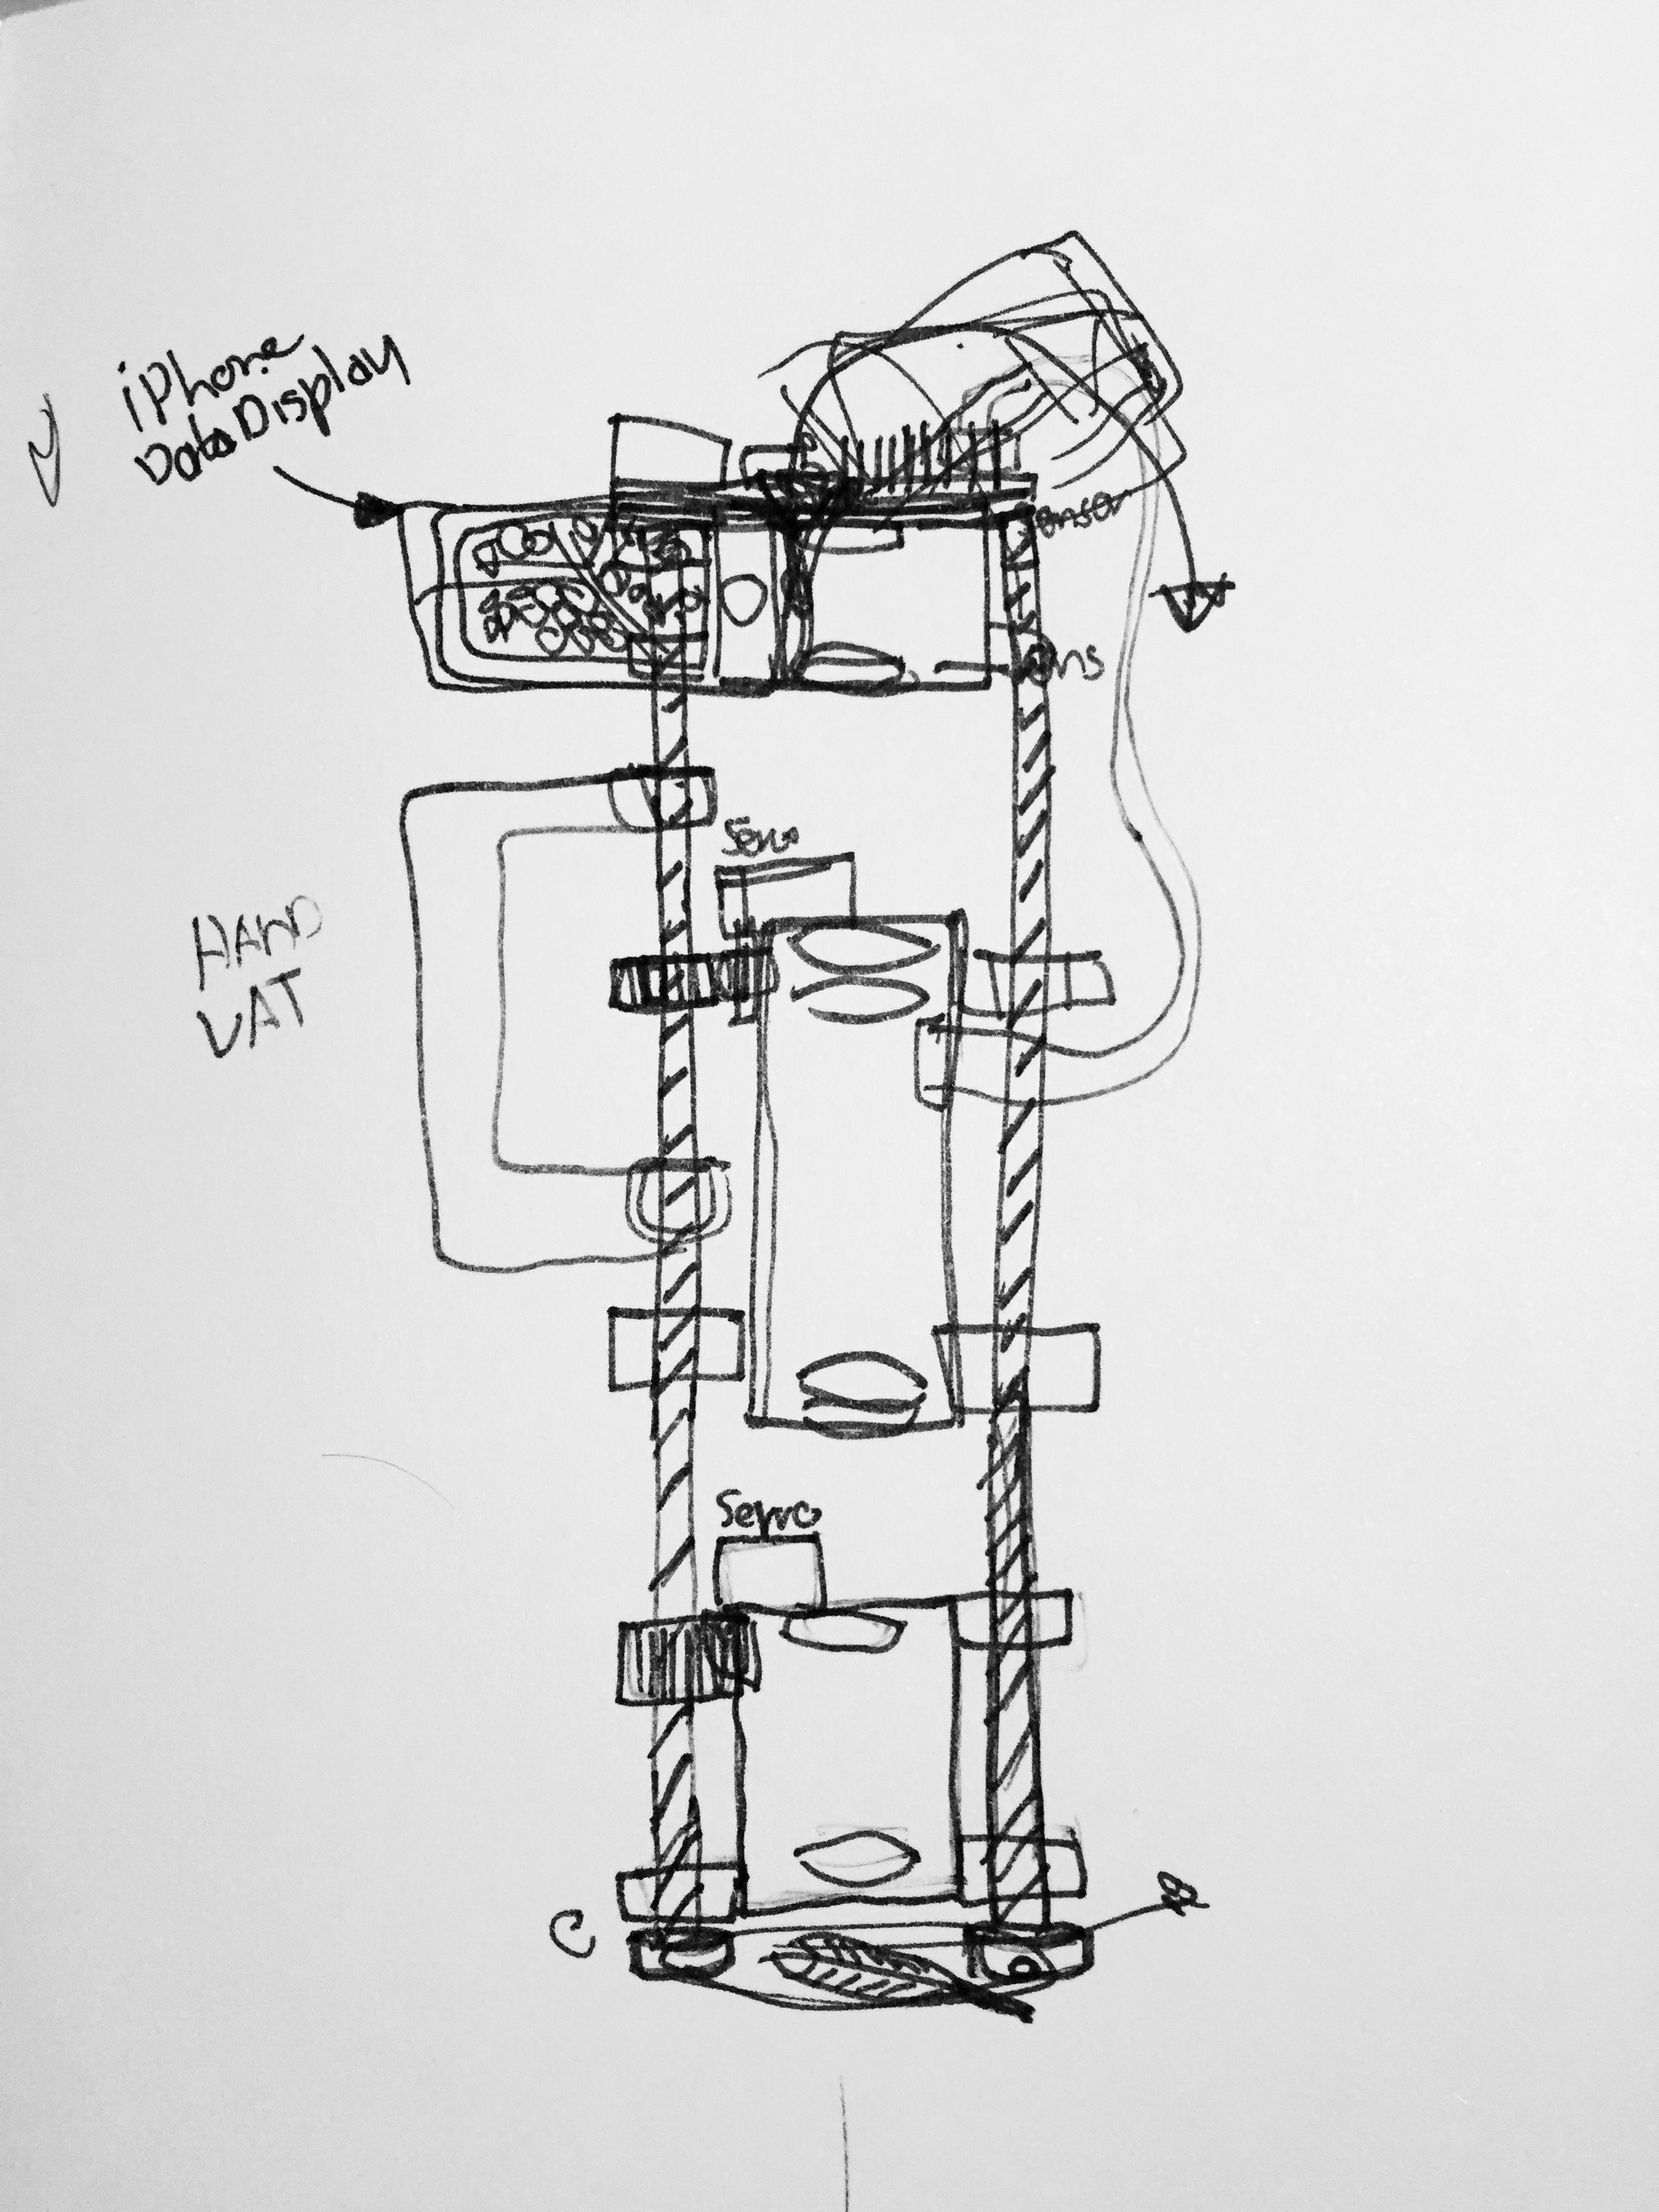 iPhone
Data Display
Sensor
Lens
Servo
HAND
VAT
Servo
C